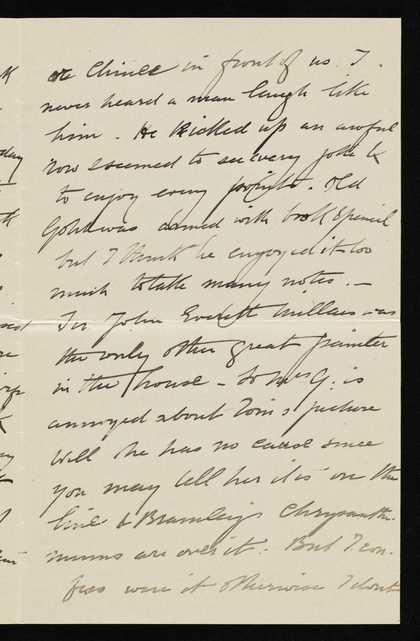 in front of us. I
never heard a man laugh like
him. He kicked up an awful
row seemed to see every joke &
to enjoy every . Old
was armed with book & pencil
but I think he enjoyed it too
much to take many notes. —
Sir John Everett Millais was
the only other great painter
in the house — So Mrs G. is
annoyed about Tom's picture
Well she has no cause since
you may tell her it is on the
line & Bramley's Chrysanthe-
mums are over it. But I con-
fess were it otherwise I dont